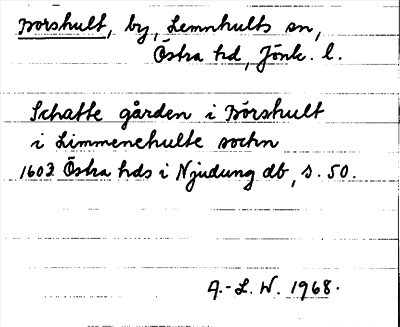 Borshult, by, Lemnhults sn,
Östra hd, Jönk. l.
Schatte gården i Börshult
i Limmenehulte sochn
1603 Östra hds i Njudung db, s. 50.
A.-L. W. 1968.